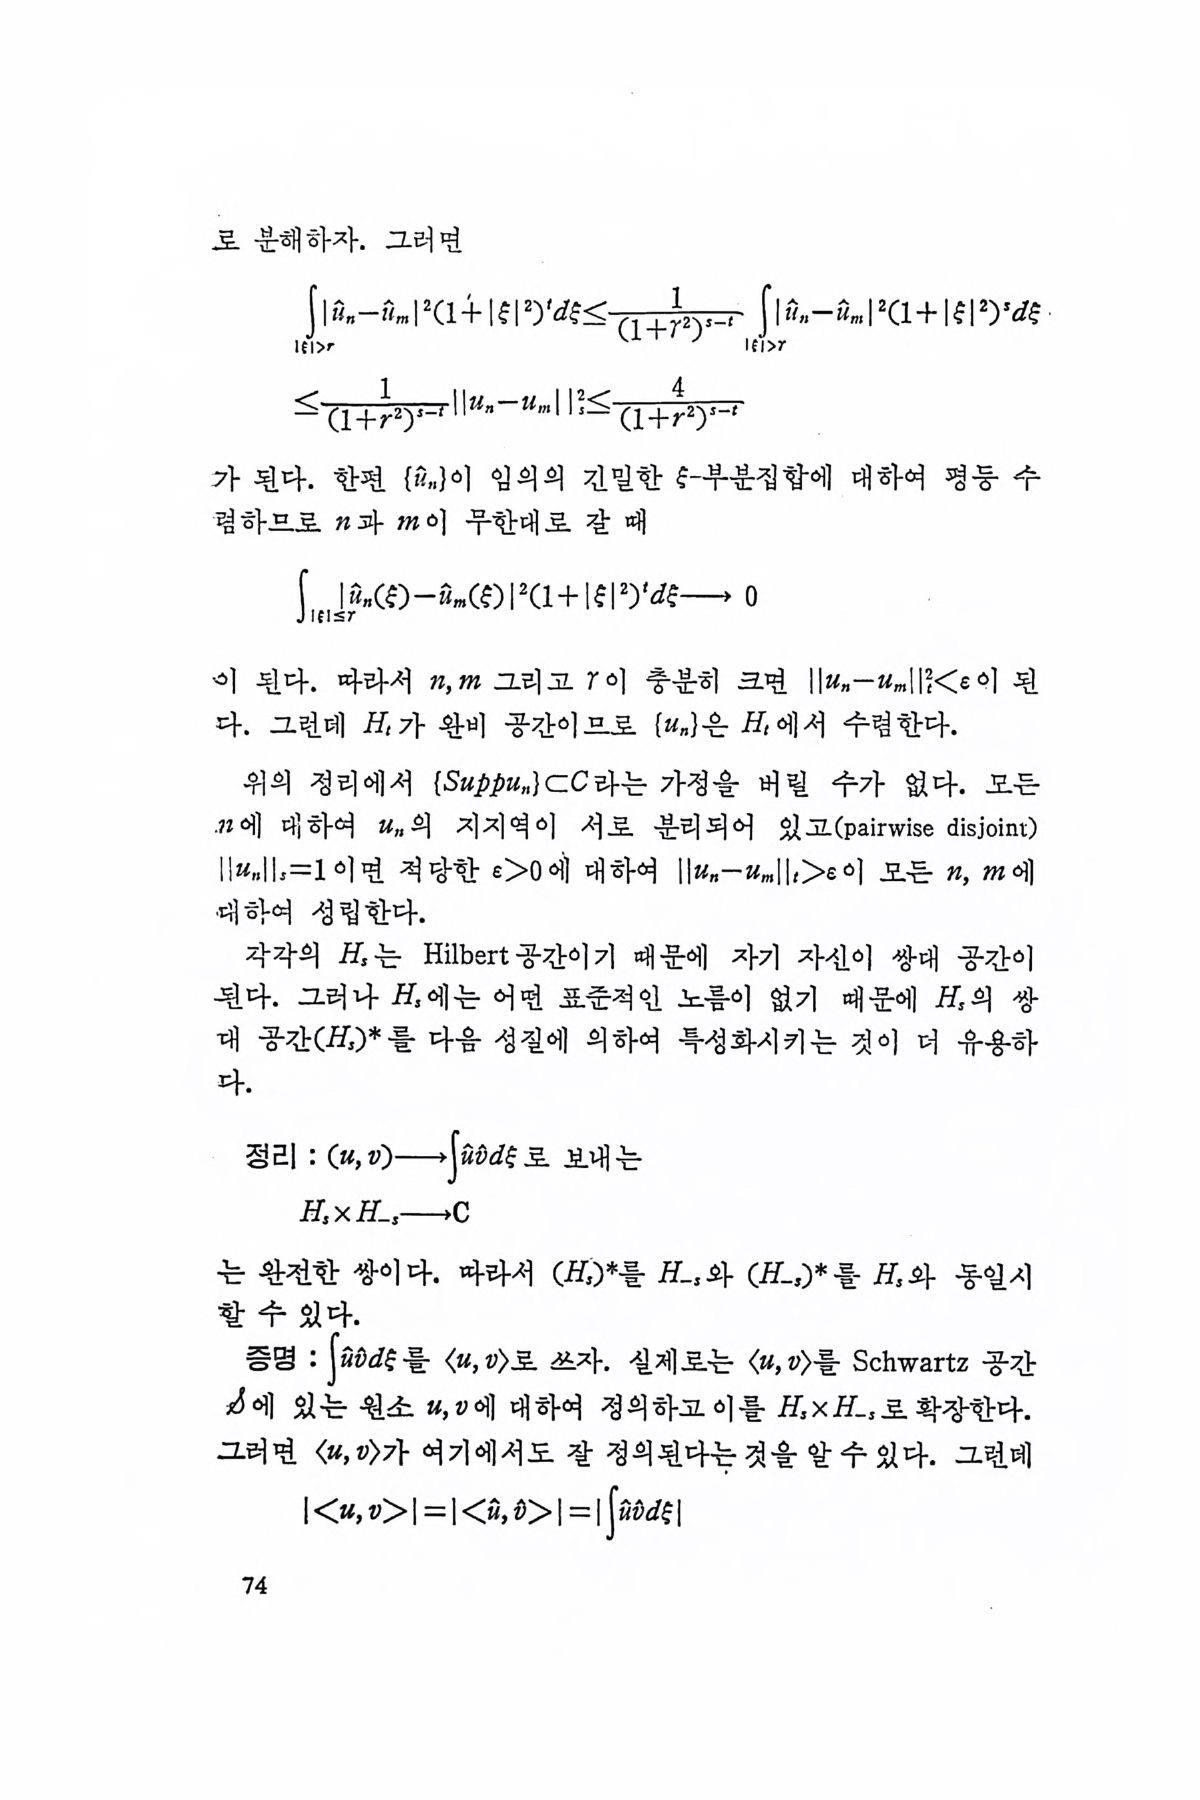 로 분해하자. 그러면
∫|û_n−û_m|²(1+|ξ|²)^t dξ≤ 1/(1+r²)^{s−t} ∫|û_n−û_m|²(1+|ξ|²)^s dξ
|ξ|>r |ξ|>r
≤ 1/(1+r²)^{s−t} ||u_n−u_m||²_s≤ 4/(1+r²)^{s−t}
가 된다. 한편 {û_n}이 임의의 긴밀한 ξ-부분집합에 대하여 평등 수
렴하므로 n과 m이 무한대로 갈 때
∫_{|ξ|≤r} |û_n(ξ)−û_m(ξ)|²(1+|ξ|²)^t dξ⟶ 0
이 된다. 따라서 n, m 그리고 r이 충분히 크면 ||u_n−u_m||²_t<ε이 된
다. 그런데 H_t가 완비 공간이므로 {u_n}은 H_t에서 수렴한다.
위의 정리에서 {Suppu_n}⊂C라는 가정을 버릴 수가 없다. 모든
n에 대하여 u_n의 지지역이 서로 분리되어 있고(pairwise disjoint)
||u_n||_s=1이면 적당한 ε>0에 대하여 ||u_n−u_m||_t>ε이 모든 n, m에
대하여 성립한다.
각각의 H_s는 Hilbert 공간이기 때문에 자기 자신이 쌍대 공간이
된다. 그러나 H_s에는 어떤 표준적인 노름이 없기 때문에 H_s의 쌍
대 공간(H_s)*를 다음 성질에 의하여 특성화시키는 것이 더 유용하
다.
정리 : (u, v)⟶∫ûv̂dξ로 보내는
H_s×H_{−s}⟶C
는 완전한 쌍이다. 따라서 (H_s)*를 H_{−s}와 (H_{−s})*를 H_s와 동일시
할 수 있다.
증명 : ∫ûv̂dξ를 ⟨u, v⟩로 쓰자. 실제로는 ⟨u, v⟩를 Schwartz 공간
𝒮에 있는 원소 u, v에 대하여 정의하고 이를 H_s×H_{−s}로 확장한다.
그러면 ⟨u, v⟩가 여기에서도 잘 정의된다는 것을 알 수 있다. 그런데
|<u, v>|=|<û, v̂>|=|∫ûv̂dξ|
74